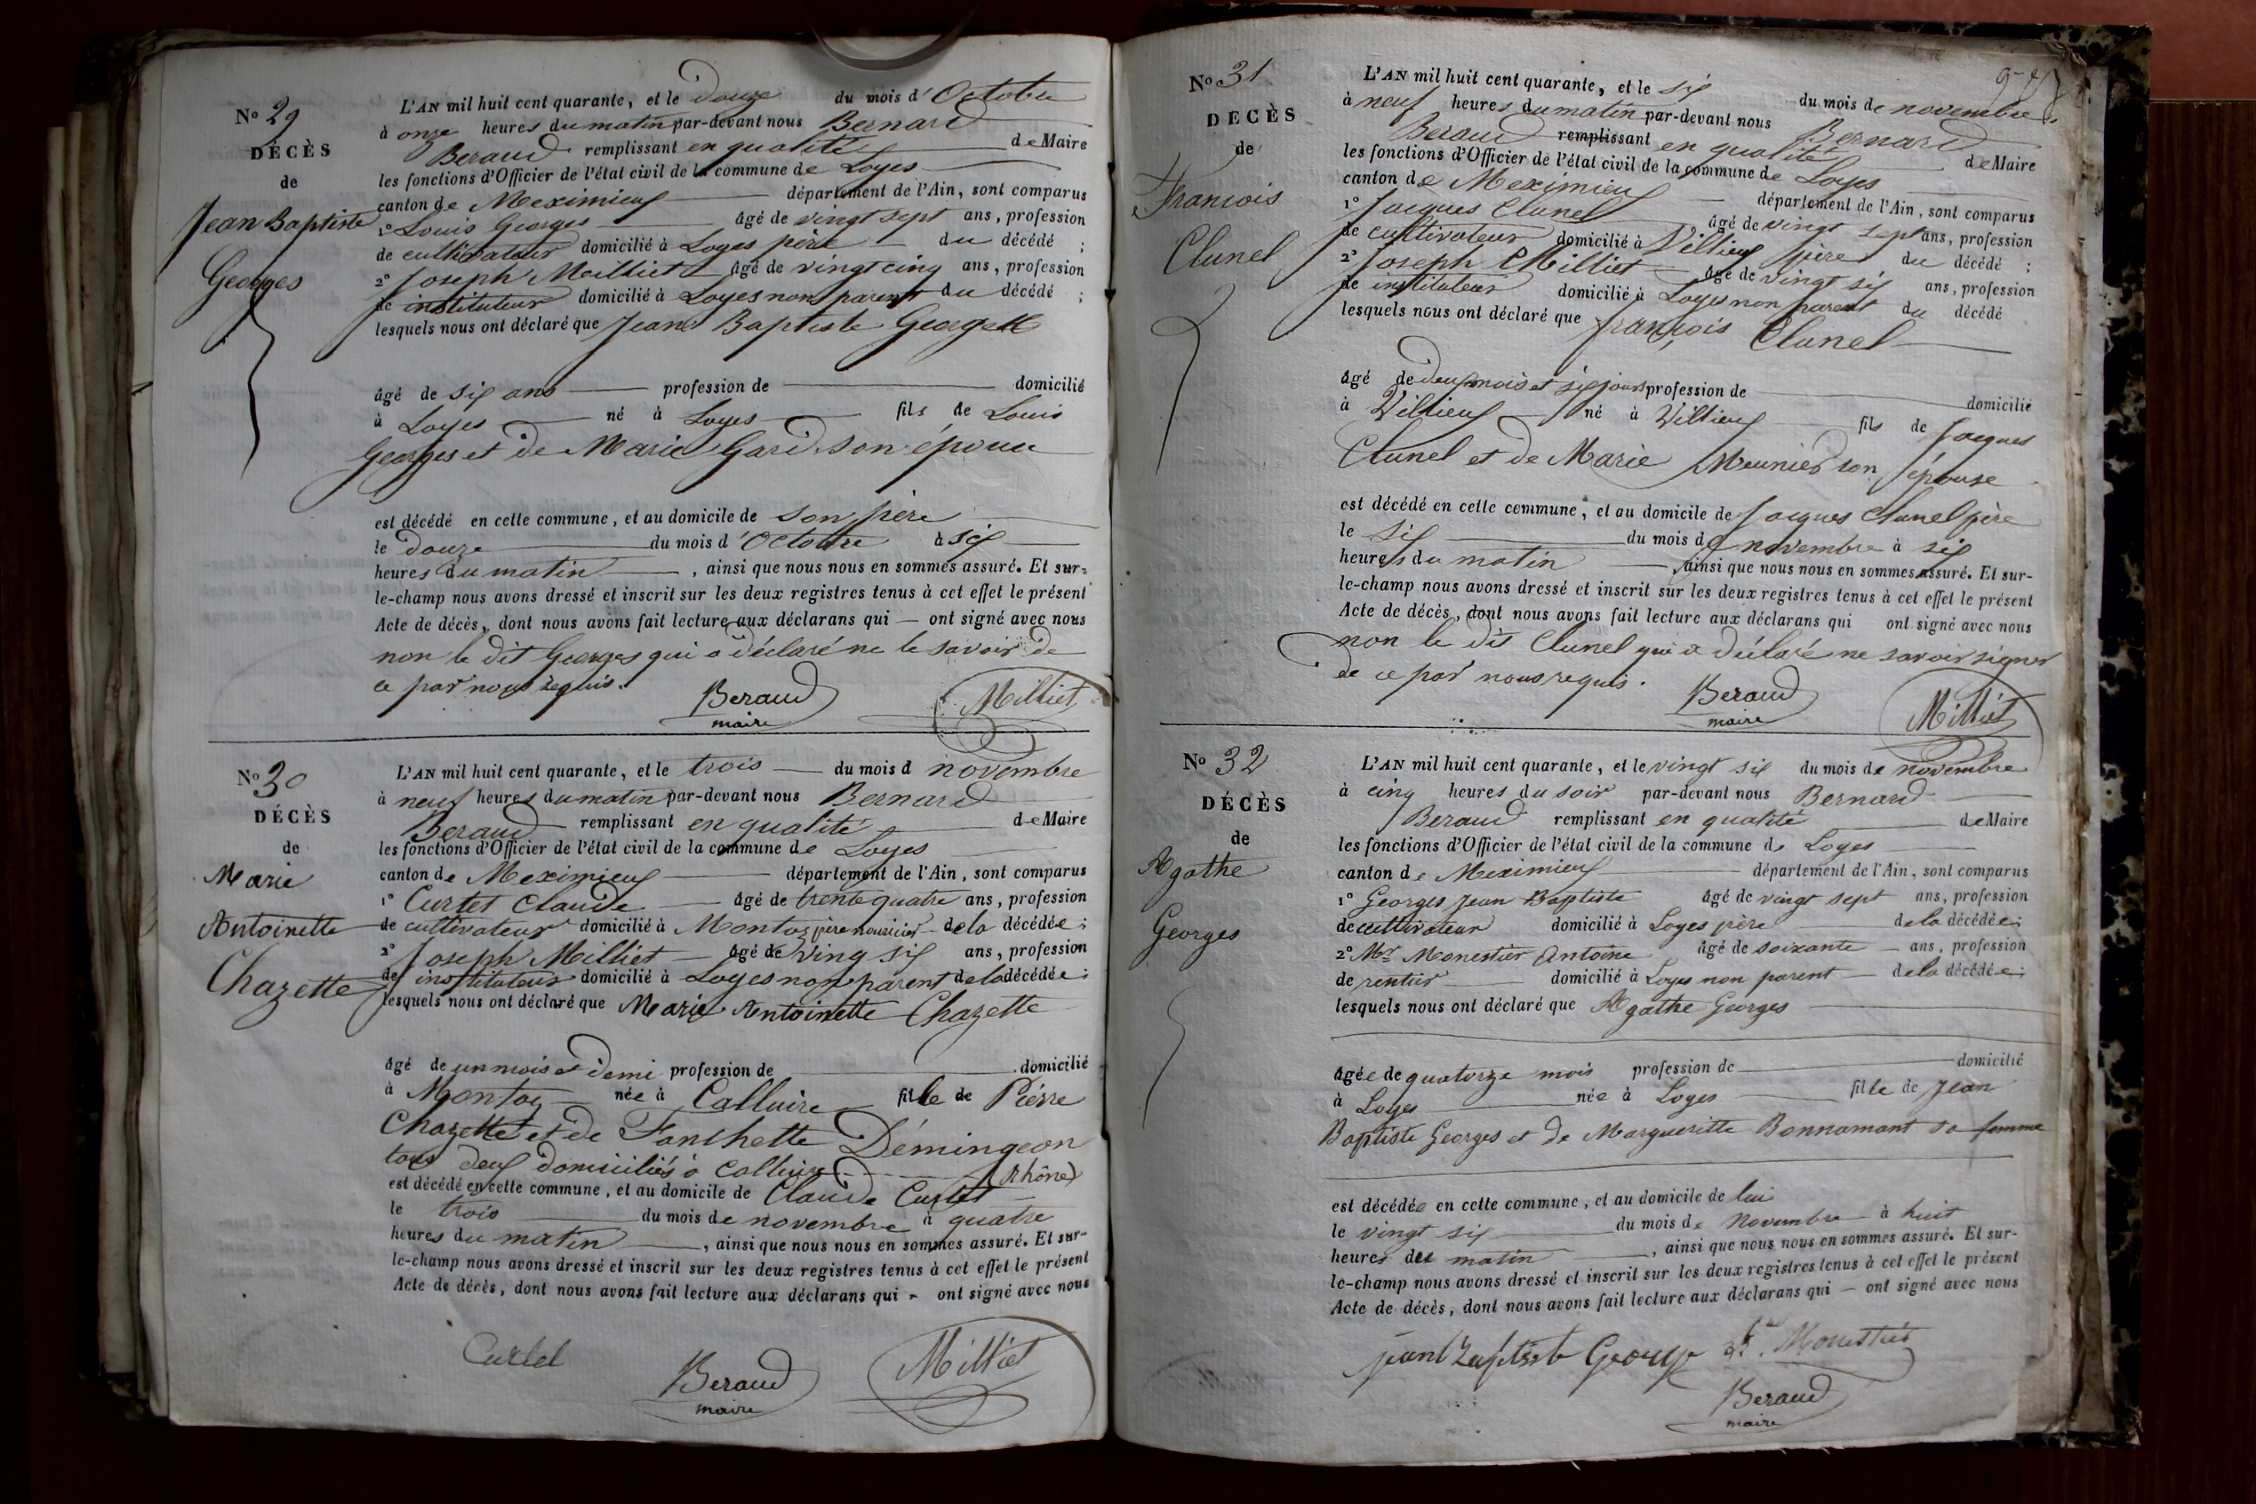 N° 29
DÉCÈS
de
Jean Baptiste
Georges
L'AN mil huit cent quarante, et le douze du mois d'Octobre
à onze heures du matin par-devant nous Bernard
Beraud remplissant en qualité de Maire
les fonctions d'Officier de l'état civil de la commune de Loyes
canton de Meximieux département de l'Ain, sont comparus
1° Louis Georges âgé de vingt sept ans, profession
de cultivateur domicilié à Loyes père du décédé ;
2° Joseph Milliet âgé de vingt cinq ans, profession
de instituteur domicilié à Loyes non parent du décédé ;
lesquels nous ont déclaré que Jean Baptiste Georges
âgé de six ans profession de domicilié
à Loyes né à Loyes fils de Louis
Georges et de Marie Gard son épouse
est décédé en cette commune, et au domicile de son père
le douze du mois d'Octobre à six
heures du matin, ainsi que nous nous en sommes assuré. Et sur-
le-champ nous avons dressé et inscrit sur les deux registres tenus à cet effet le présent
Acte de décès, dont nous avons fait lecture aux déclarans qui — ont signé avec nous
non le dit Georges qui a déclaré ne le savoir de
ce par nous requis.
Beraud
maire
Milliet
N° 30
DÉCÈS
de
Marie
Antoinette
Chazette
L'AN mil huit cent quarante, et le trois du mois d novembre
à neuf heures du matin par-devant nous Bernard
Beraud remplissant en qualité de Maire
les fonctions d'Officier de l'état civil de la commune de Loyes
canton de Meximieux département de l'Ain, sont comparus
1° Curtet Claude âgé de trente quatre ans, profession
de cultivateur domicilié à Montoz père nouricier de la décédée ;
2° Joseph Milliet âgé de ving six ans, profession
de instituteur domicilié à Loyes non parent de la décédée ;
lesquels nous ont déclaré que Marie Antoinette Chazette
âgé de un mois et demi profession de domicilié
à Montoz née à Calluire fille de Piérre
Chazette et de Fanchette Démingeon
tous deux domiciliés à Calluire (Rhône)
est décédé en cette commune, et au domicile de Claude Curtet
le trois du mois de novembre à quatre
heures du matin, ainsi que nous nous en sommes assuré. Et sur-
le-champ nous avons dressé et inscrit sur les deux registres tenus à cet effet le présent
Acte de décès, dont nous avons fait lecture aux déclarans qui - ont signé avec nous
Curtet
Beraud
maire
Milliet
N° 31
DÉCÈS
de
Francois
Clunel
L'AN mil huit cent quarante, et le six du mois de novembre
à neuf heures du matin par-devant nous Bernard
Beraud remplissant en qualité de Maire
les fonctions d'Officier de l'état civil de la commune de Loyes
canton de Meximieux département de l'Ain, sont comparus
1° Jacques Clunel âgé de vingt sept ans, profession
de cultivateur domicilié à Villieux père du décédé ;
2° Joseph Milliet âgé de vingt six ans, profession
de instituteur domicilié à Loyes non parent du décédé
lesquels nous ont déclaré que françois Clunel
âgé de deux mois et six jours profession de domicilié
à Villieux né à Villieux fils de Jacques
Clunel et de Marie Meunier son épouse
est décédé en cette commune, et au domicile de Jacques Clunel père
le six du mois de novembre à six
heures du matin, ainsi que nous nous en sommes assuré. Et sur-
le-champ nous avons dressé et inscrit sur les deux registres tenus à cet effet le présent
Acte de décès, dont nous avons fait lecture aux déclarans qui ont signé avec nous
non le dit Clunel qui a déclaré ne savoir signer
de ce par nous requis.
Beraud
maire
Milliet
N° 32
DÉCÈS
de
Agathe
Georges
L'AN mil huit cent quarante, et le vingt six du mois de novembre
à cinq heures du soir par-devant nous Bernard
Beraud remplissant en qualité de Maire
les fonctions d'Officier de l'état civil de la commune de Loyes
canton de Meximieux département de l'Ain, sont comparus
1° Georges Jean Baptiste âgé de vingt sept ans, profession
de cultivateur domicilié à Loyes père de la décédée ;
2° Mr Monestier Antoine âgé de soixante ans, profession
de rentier domicilié à Loyes non parent de la décédée ;
lesquels nous ont déclaré que Agathe Georges
âgée de quatorze mois profession de domicilié
à Loyes née à Loyes fille de Jean
Baptiste Georges et de Margueritte Bonnamant sa femme
est décédée en cette commune, et au domicile de lui
le vingt six du mois de Novembre à huit
heures du matin, ainsi que nous nous en sommes assuré. Et sur-
le-champ nous avons dressé et inscrit sur les deux registres tenus à cet effet le présent
Acte de décès, dont nous avons fait lecture aux déclarans qui — ont signé avec nous
jean Baptiste George Monestier
Beraud
maire